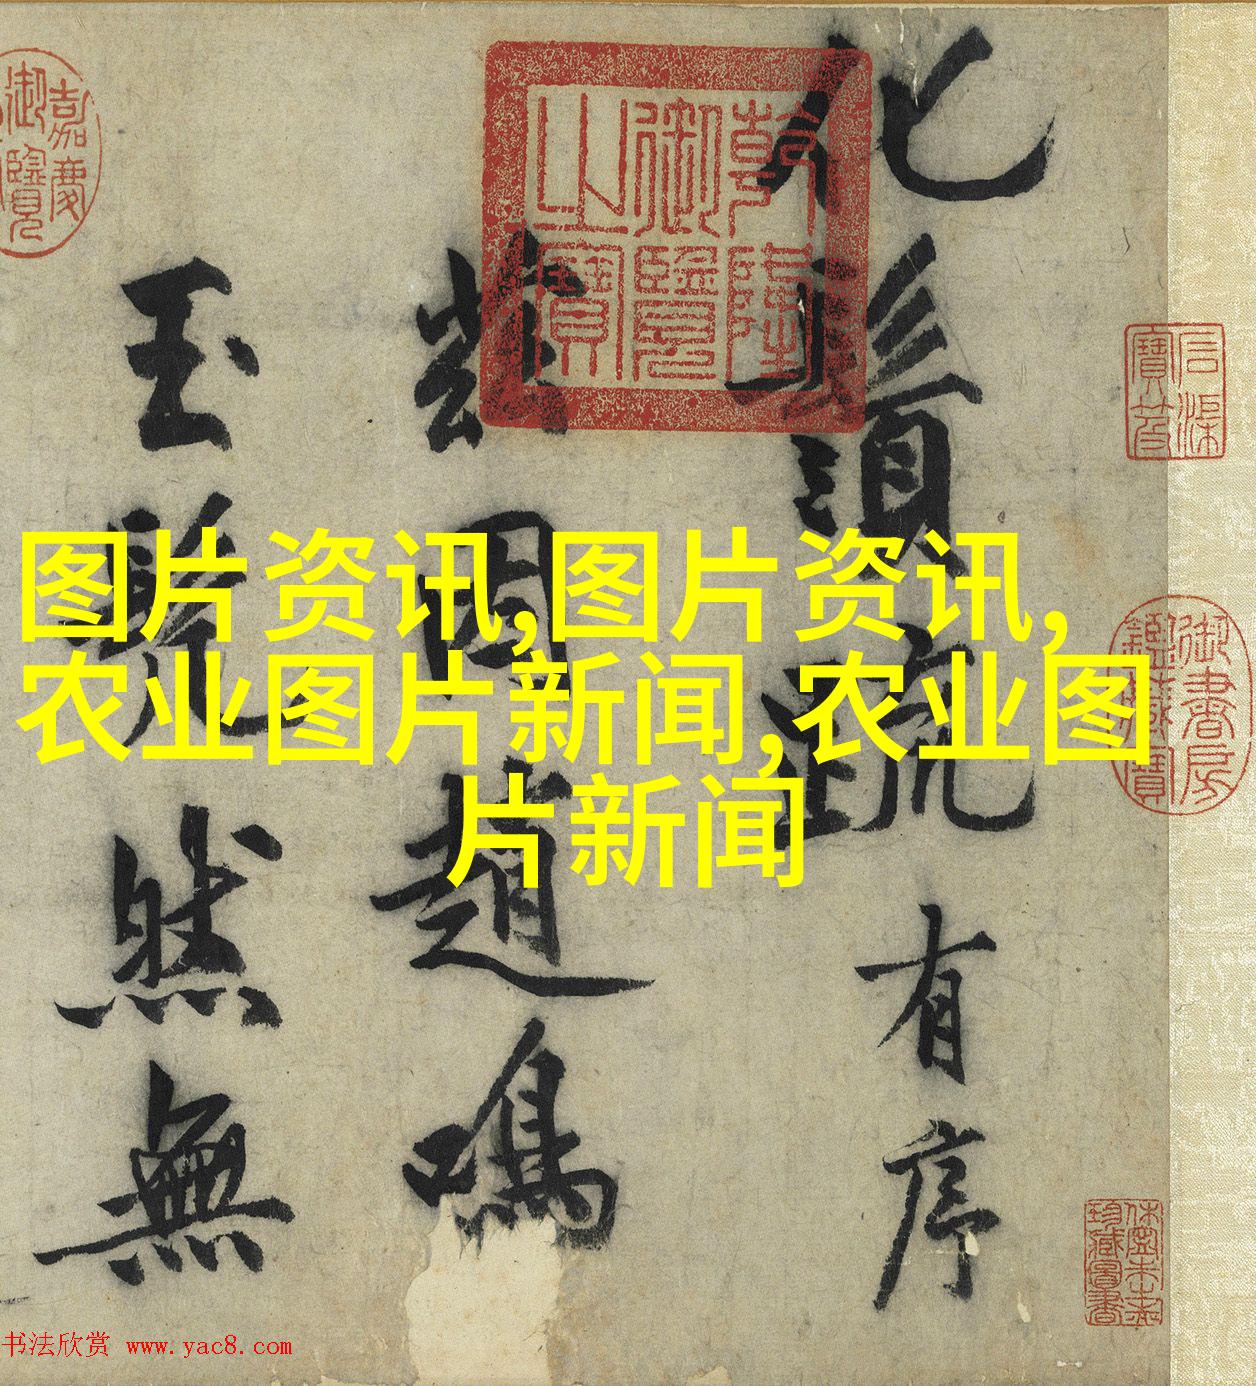 乾隆
御覽
之寶
嘉慶
御覽
石渠
寶笈
御書房
鑑藏寶
休寧朱之赤
珍藏圖書
化鬚疏有序
因趙鳴
玉然無
图片资讯,图片资讯,
农业图片新闻,农业图
片新闻
书法欣赏 www.yac8.com